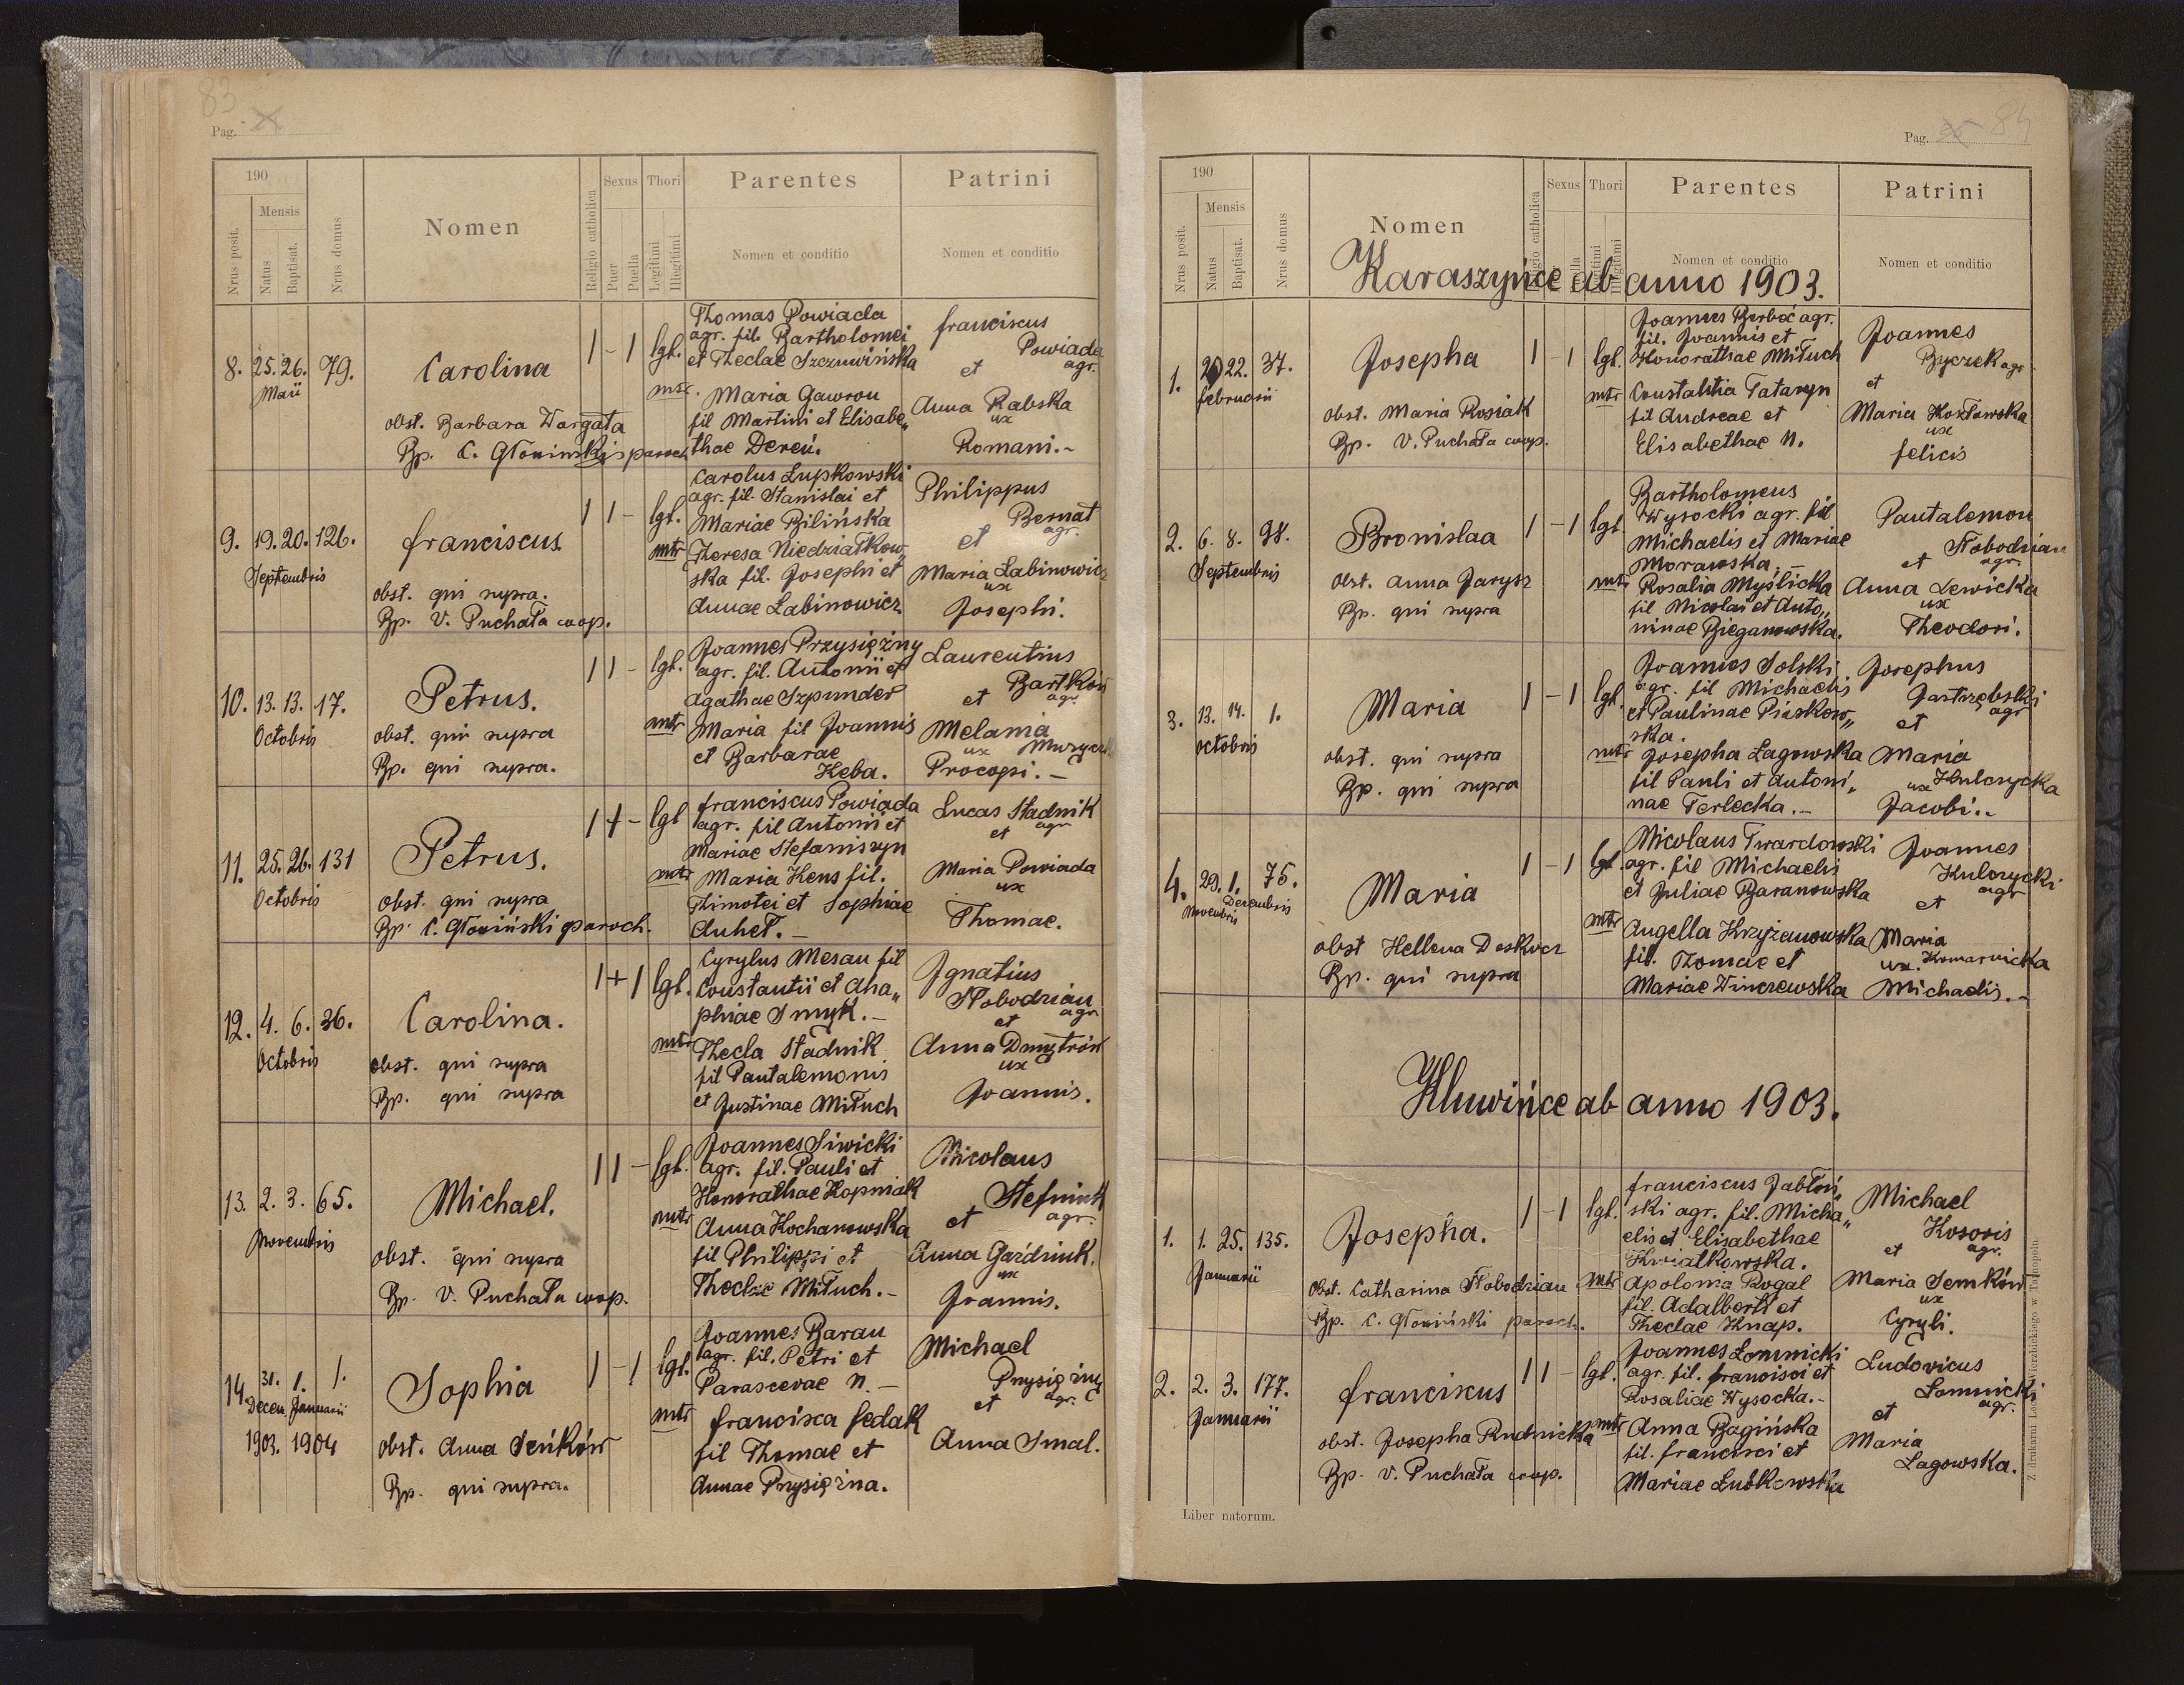 83
Pag. X
190
Nrus posit.
Mensis
Natus
Baptisat.
Nrus domus
Nomen
Religio catholica
Sexus
Puer
Puella
Thori
Legitimi
Illegitimi
Parentes
Nomen et conditio
Patrini
Nomen et conditio
8. 25. 26. 79.
Maii
Carolina
obst. Barbara Wargata
Bp. C. Głoninski paroch
1 - 1 lgl.
mtr.
Thomas Powiada
agr. fil. Bartholomei
et Theclae Szczuwińska
Maria Gawron
fil Martini et Elisabe„
thae Dereń.
franciscus
Powiada
et agr.
Anna Rabska
ux
Romani.-
9. 19. 20. 126.
Septembris
franciscus
obst. qui supra.
Bp. V. Puchała coop.
1 1 - lgl.
mtr
Carolus Łupkowski
agr. fil. Stanislai et
Mariae Bilińska
Theresa Niedziałkow„
ska fil. Josephi et
Annae Łabinowicz
Philippus
Bernat
et agr.
Maria Łabinowicz
ux
Josephi.
10. 13. 13. 17.
Octobris
Petrus.
obst. qui supra
Bp. qui supra.
1 1 - lgl.
mtr
Joannes Przysiężny
agr. fil. Antonii et
Agathae Szpunder
Maria fil Joannis
et Barbarae
Keba.
Laurentius
Bartków
et agr.
Melania
ux
Procopi. -
11. 25. 26. 131
Octobris
Petrus.
obst. qui supra
Bp. C. Głoniński paroch.
1 + - lgl
mtr
franciscus Powiada
agr. fil Antonii et
Mariae Stefaniszyn
Maria Kens fil.
Thimotei et Sophiae
Auheł. -
Lucas Stadnik
et agr
Maria Powiada
ux
Thomae.
12. 4. 6. 36.
Octobris
Carolina.
obst. qui supra
Bp. qui supra
1 + 1 lgl.
mtr
Cyrylus Mesau fil
Constantii et Aha„
phiae Smyk. -
Thecla Stadnik
fil Pantalemonis
et Justinae Miłuch
Jgnatius
Słobodzian
et agr
Anna Dmytrów
ux
Joannis.
13. 2. 3. 65.
Novembris
Michael.
obst. qui supra
Bp. V. Puchała coop.
1 1 - lgl.
mtr
Joannes Siwicki
agr. fil. Pauli et
Honorathae Kopniak
Anna Kochanowska
fil Philippi et
Theclae Miłuch. -
Nicolaus
Stefniuk
et agr.
Anna Gaździuk.
ux
Joannis.
14. 31. 1. 1.
Decem. Januarii
1903. 1904
Sophia
obst. Anna Seńków
Bp. qui supra.
1 - 1 lgl.
mtr
Joannes Baran
agr. fil. Petri et
Parascevae N. -
francisca fedak
fil Thomae et
Annae Przysiężna.
Michael
Przysiężny
et agr.
Anna Smal.
Pag. 84
190
Nrus posit.
Mensis
Natus
Baptisat.
Nrus domus
Nomen
Religio catholica
Sexus
Puella
Thori
Legitimi
Illegitimi
Parentes
Nomen et conditio
Patrini
Nomen et conditio
Karaszyńce ab anno 1903.
1. 20 22. 37.
februarii
Josepha
obst. Maria Rosiak
Bp. V. Puchała coop.
1 - 1 lgl.
mtr
Joannes Berboć agr.
fil. Joannis et
Honorathae Miłuch
Constantia Tataryn
fil Andreae et
Elisabethae N.
Joannes
Byczek agr
et
Maria Kozłowska
ux
felicis
2. 6. 8. 98.
Septembris
Bronislaa
obst. Anna Jarysz
Bp. qui supra
1 - 1 lgl
mtr
Bartholomeus
Wysocki agr. fil
Michaelis et Mariae
Morawska. -
Rosalia Myślicka
fil Nicolai et Anto„
ninae Bieganowska.
Pantalemon
Słobodzian
et agr.
Anna Lewicka
ux
Theodori.
3. 13. 14. 1.
Octobris
Maria
obst. qui supra
Bp. qui supra
1 - 1 lgl.
mtr
Joannes Solski
agr. fil Michaelis
et Paulinae Piaskow„
ska.
Josepha Łagowska
fil Pauli et Antoni„
nae Terlecka. -
Josephus
Jastrzębski
et agr
Maria
ux Kulczycka
Jacobi.-
4. 29. 1. 75.
Novembris Decembris
Maria
obst Hellena Deskocz
Bp. qui supra
1 - 1 lgl.
mtr
Nicolaus Twardowski
agr. fil Michaelis
et Juliae Baranowska
Angella Krzyżanowska
fil. Thomae et
Mariae Winczewska
Joannes
Kulczycki
agr
et
Maria
ux. Komarnicka
Michaelis. -
Kluwińce ab anno 1903.
1. 1. 25. 135.
Januarii
Josepha.
obst. Catharina Słobodzian
Bp. C. Głoniński paroch.
1 - 1 lgl.
mtr
franciscus Jabłoń„
ski agr. fil. Micha„
elis et Elisabethae
Kwiatkowska.
Apolonia Rogal
fil. Adalberti et
Theclae Knap.
Michael
Kosoris
et agr.
Maria Semków
ux
Cyryli.
2. 2. 3. 177.
Januarii
franciscus
obst. Josepha Rudnicka
Bp. V. Puchała coop.
1 1 - lgl.
mtr
Joannes Łomnicki
agr. fil. francisci et
Rosaliae Wysocka.-
Anna Bagińska
fil. francisci et
Mariae Lubkowska
Ludovicus
Łomnicki
agr.
et
Maria
Łagowska.
Liber natorum.
Z drukarni Leo. Wierzbickiego w Tarnopolu.